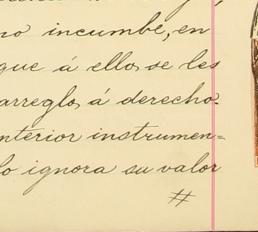 no incumbe, en
que á ellos se les
arreglo á derecho.
nterior instrumen=
lo ignora su valor
#